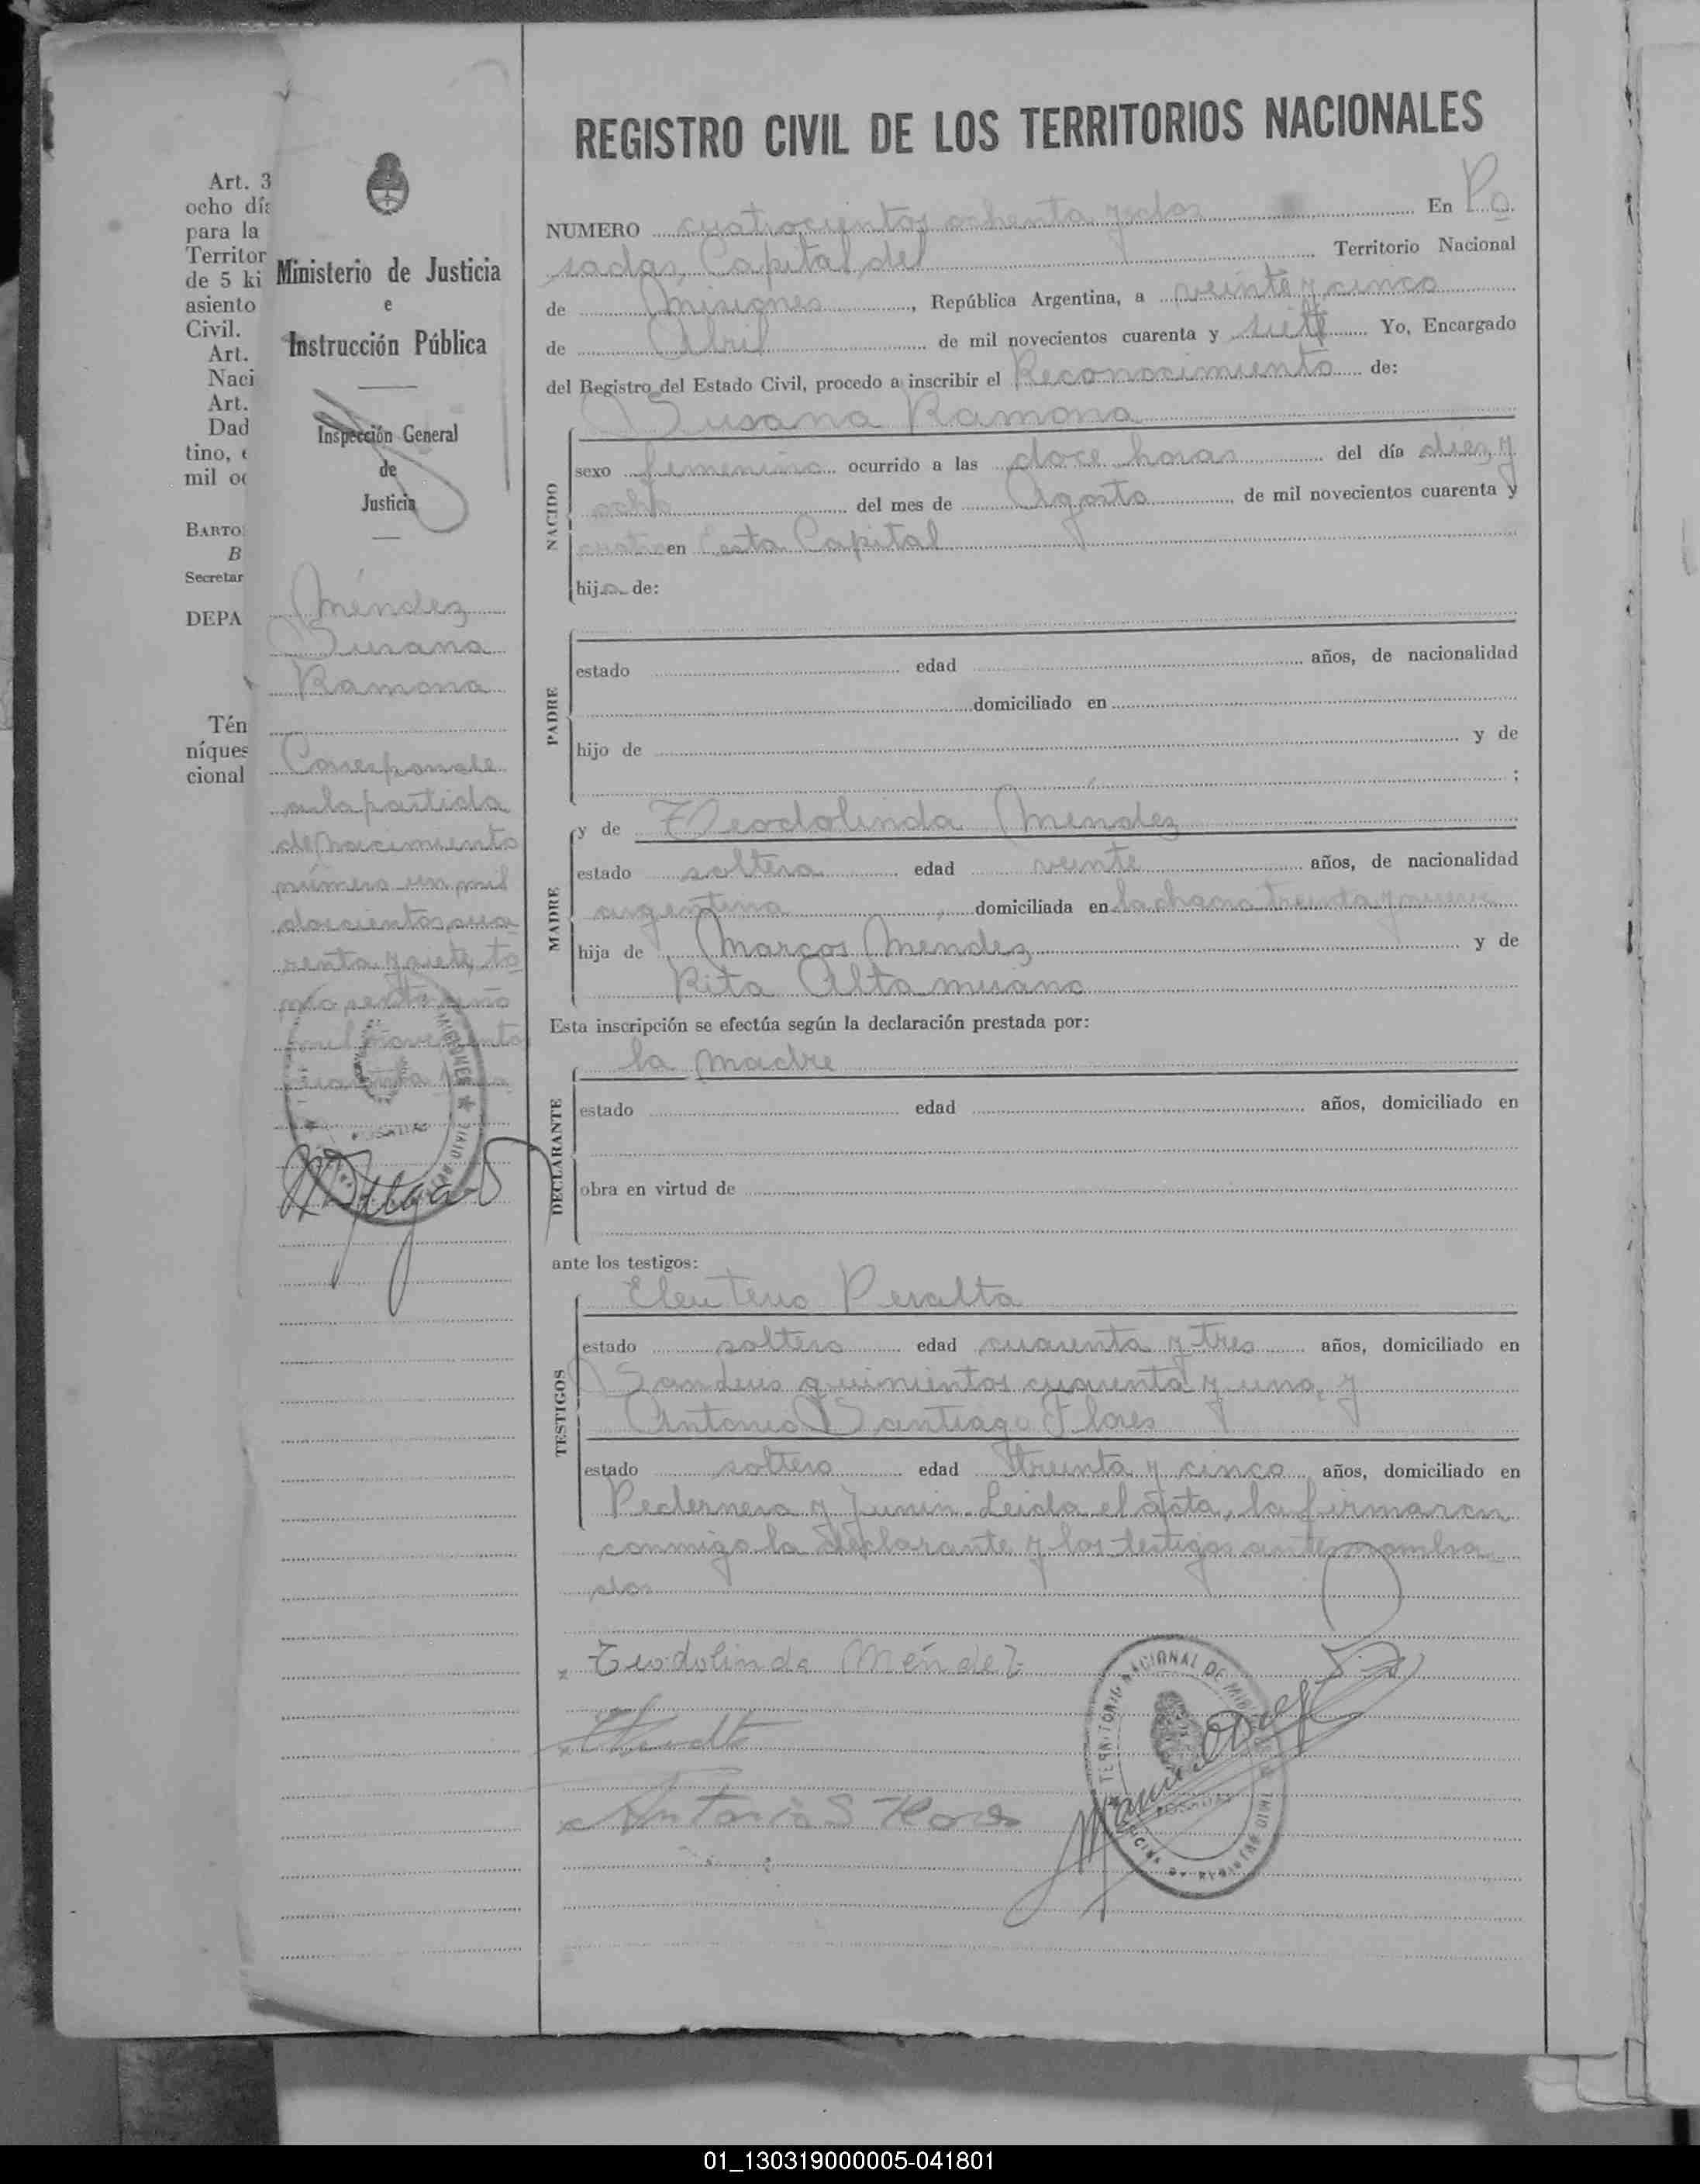 Art. 3
ocho día
para la
Territor
de 5 ki
asiento
Civil.
Art.
Naci
Art.
Dad
tino, e
mil oc
BARTO
B
Secretar
DEPA
Tén
níques
cional
Ministerio de Justicia
e
Instrucción Pública
Inspección General
de
Justicia
Méndez
Susana
Ramona
Corresponde
a la partida
de nacimiento
número un mil
doscientos cua
renta y siete, to
mo sexto año
mil novecientos
cuarenta
REGISTRO CIVIL DE LOS TERRITORIOS NACIONALES
NUMERO cuatrocientos ochenta y dos En Po
sadas, Capital del Territorio Nacional
de Misiones, República Argentina, a veinte y cinco
de Abril de mil novecientos cuarenta y siete Yo, Encargado
del Registro del Estado Civil, procedo a inscribir el Reconocimiento de:
Susana Ramona
NACIDO
sexo femenino ocurrido a las doce horas del día diez y
ocho del mes de Agosto de mil novecientos cuarenta y
cuatro en Esta Capital
hija de:
PADRE
estado edad años, de nacionalidad
domiciliado en
hijo de y de
;
MADRE
y de Teodolinda Mendez
estado soltera edad veinte años, de nacionalidad
argentina domiciliada en la chacra treinta y nueve
hija de Marcos Mendez y de
Rita Altamirano
Esta inscripción se efectúa según la declaración prestada por:
la madre
DECLARANTE
estado edad años, domiciliado en
obra en virtud de
ante los testigos:
Eleuterio Peralta
TESTIGOS
estado soltero edad cuarenta y tres años, domiciliado en
quinientos cuarenta y uno, y
Antonio Santiago Flores
estado soltero edad treinta y cinco años, domiciliado en
Pedernera y Junin. Leida el acta, la firmaron
conmigo la declarante y los testigos antes nombra
dos
Teodolinda Méndez
Antonio S Flores
TERRITORIO NACIONAL DE MISIONES
POSADAS
01_130319000005-041801